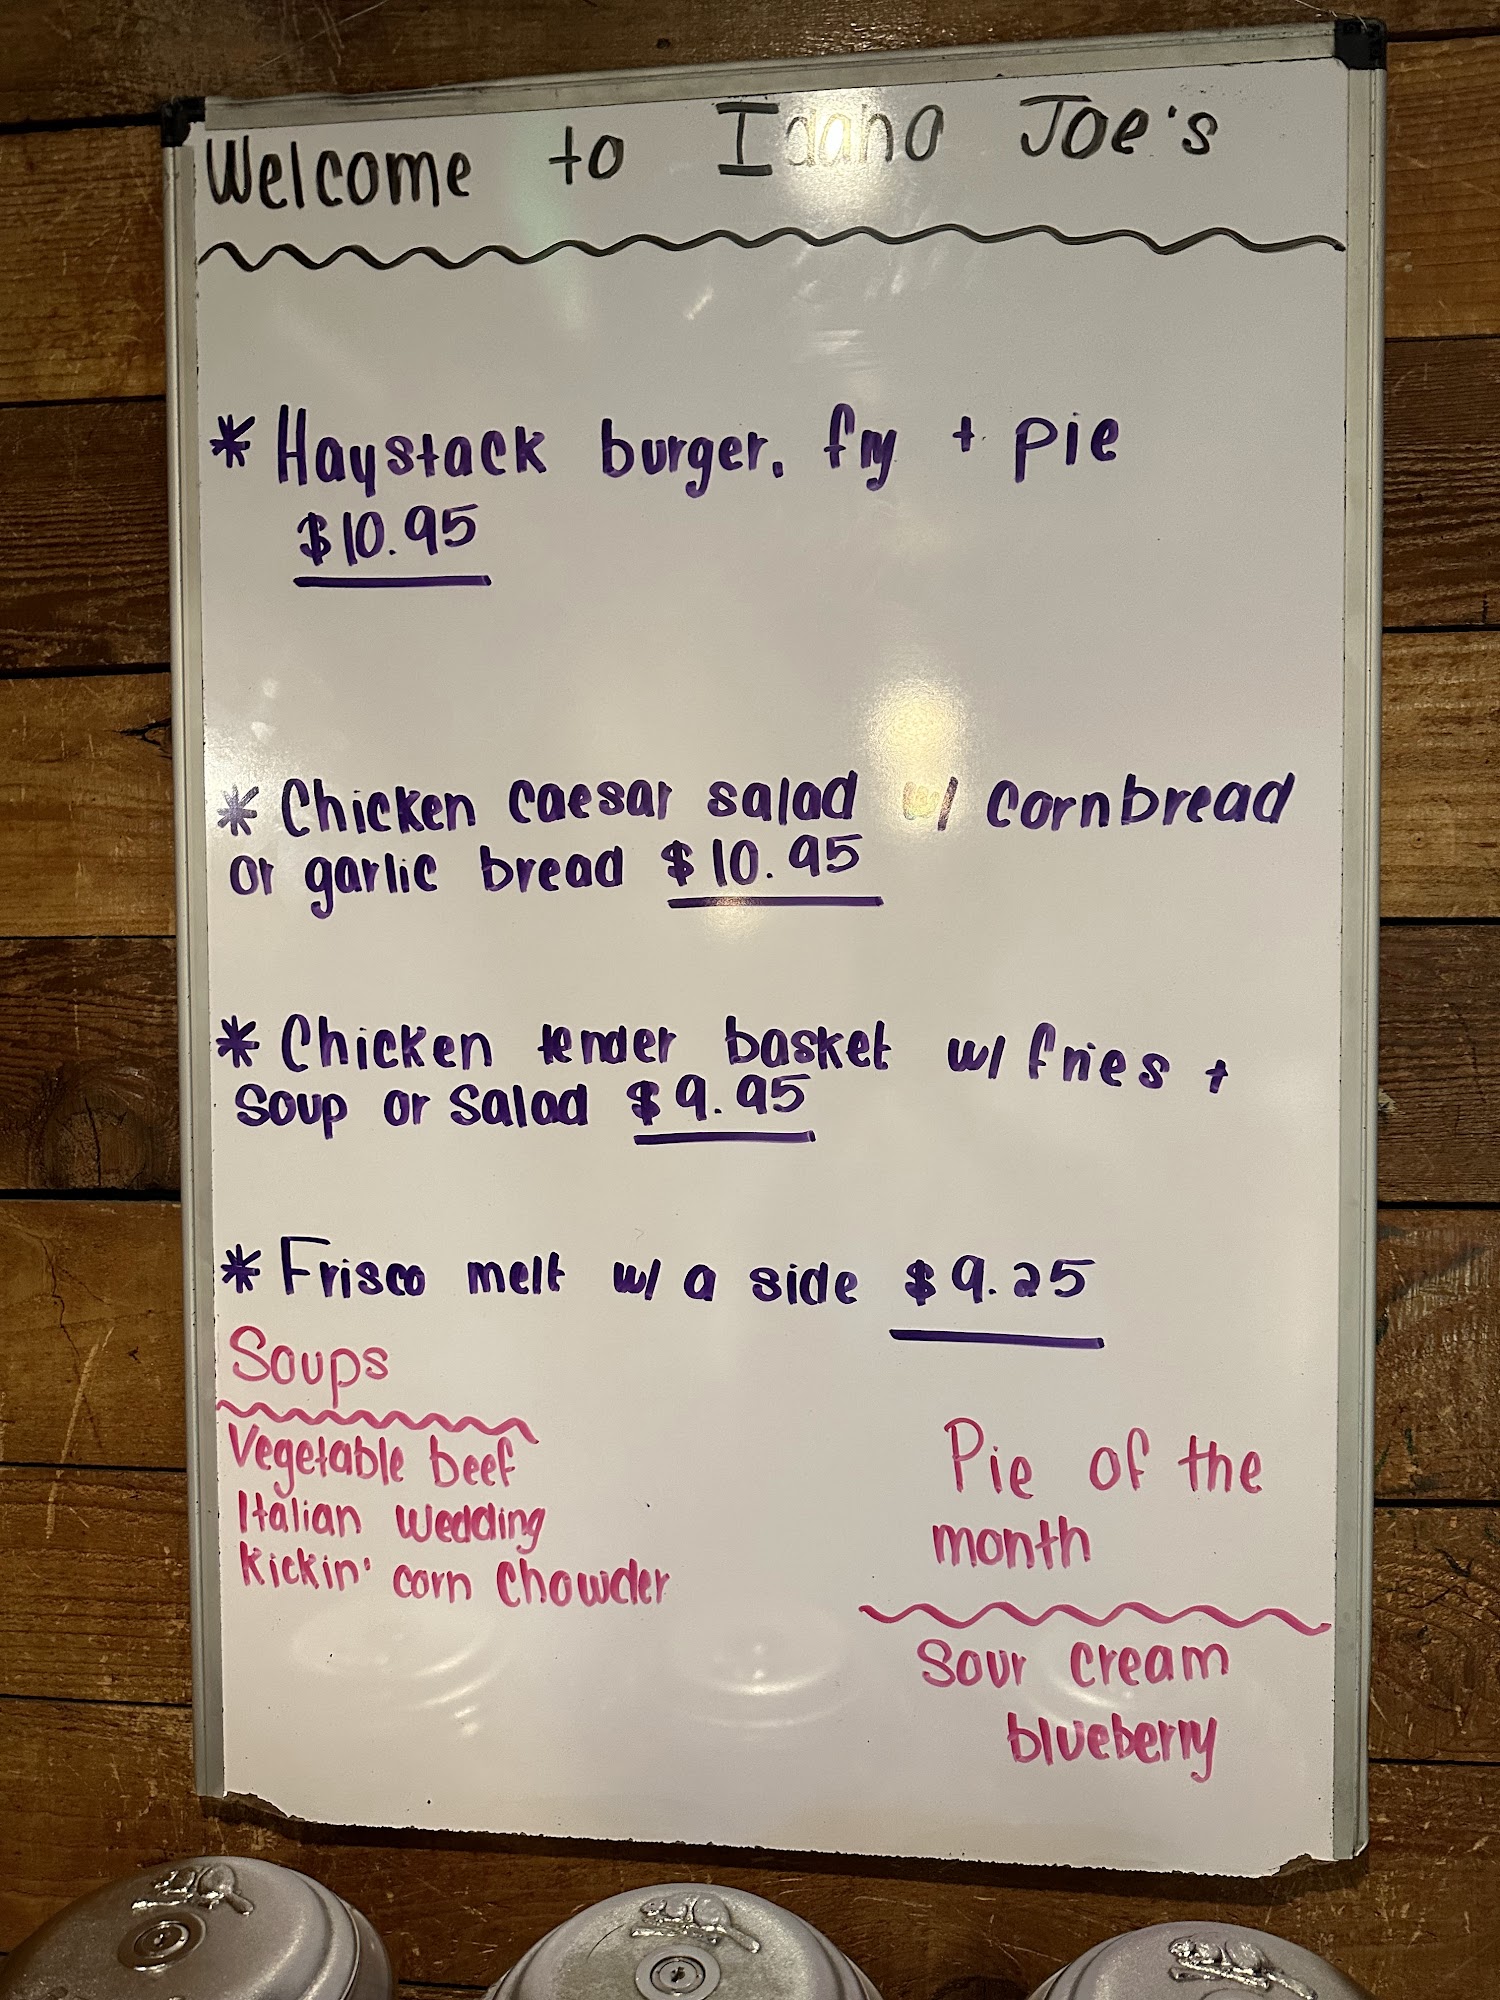 Welcome to Idaho Joe's
* Haystack burger, fry + pie
$10.95
* Chicken caesar salad w/ cornbread
or garlic bread $10.95
* Chicken tender basket w/ fries +
Soup or Salad $9.95
* Frisco melt w/ a side $9.25
Soups
Vegetable beef
Italian wedding
Kickin' corn chowder
Pie of the
month
Sour cream
blueberry